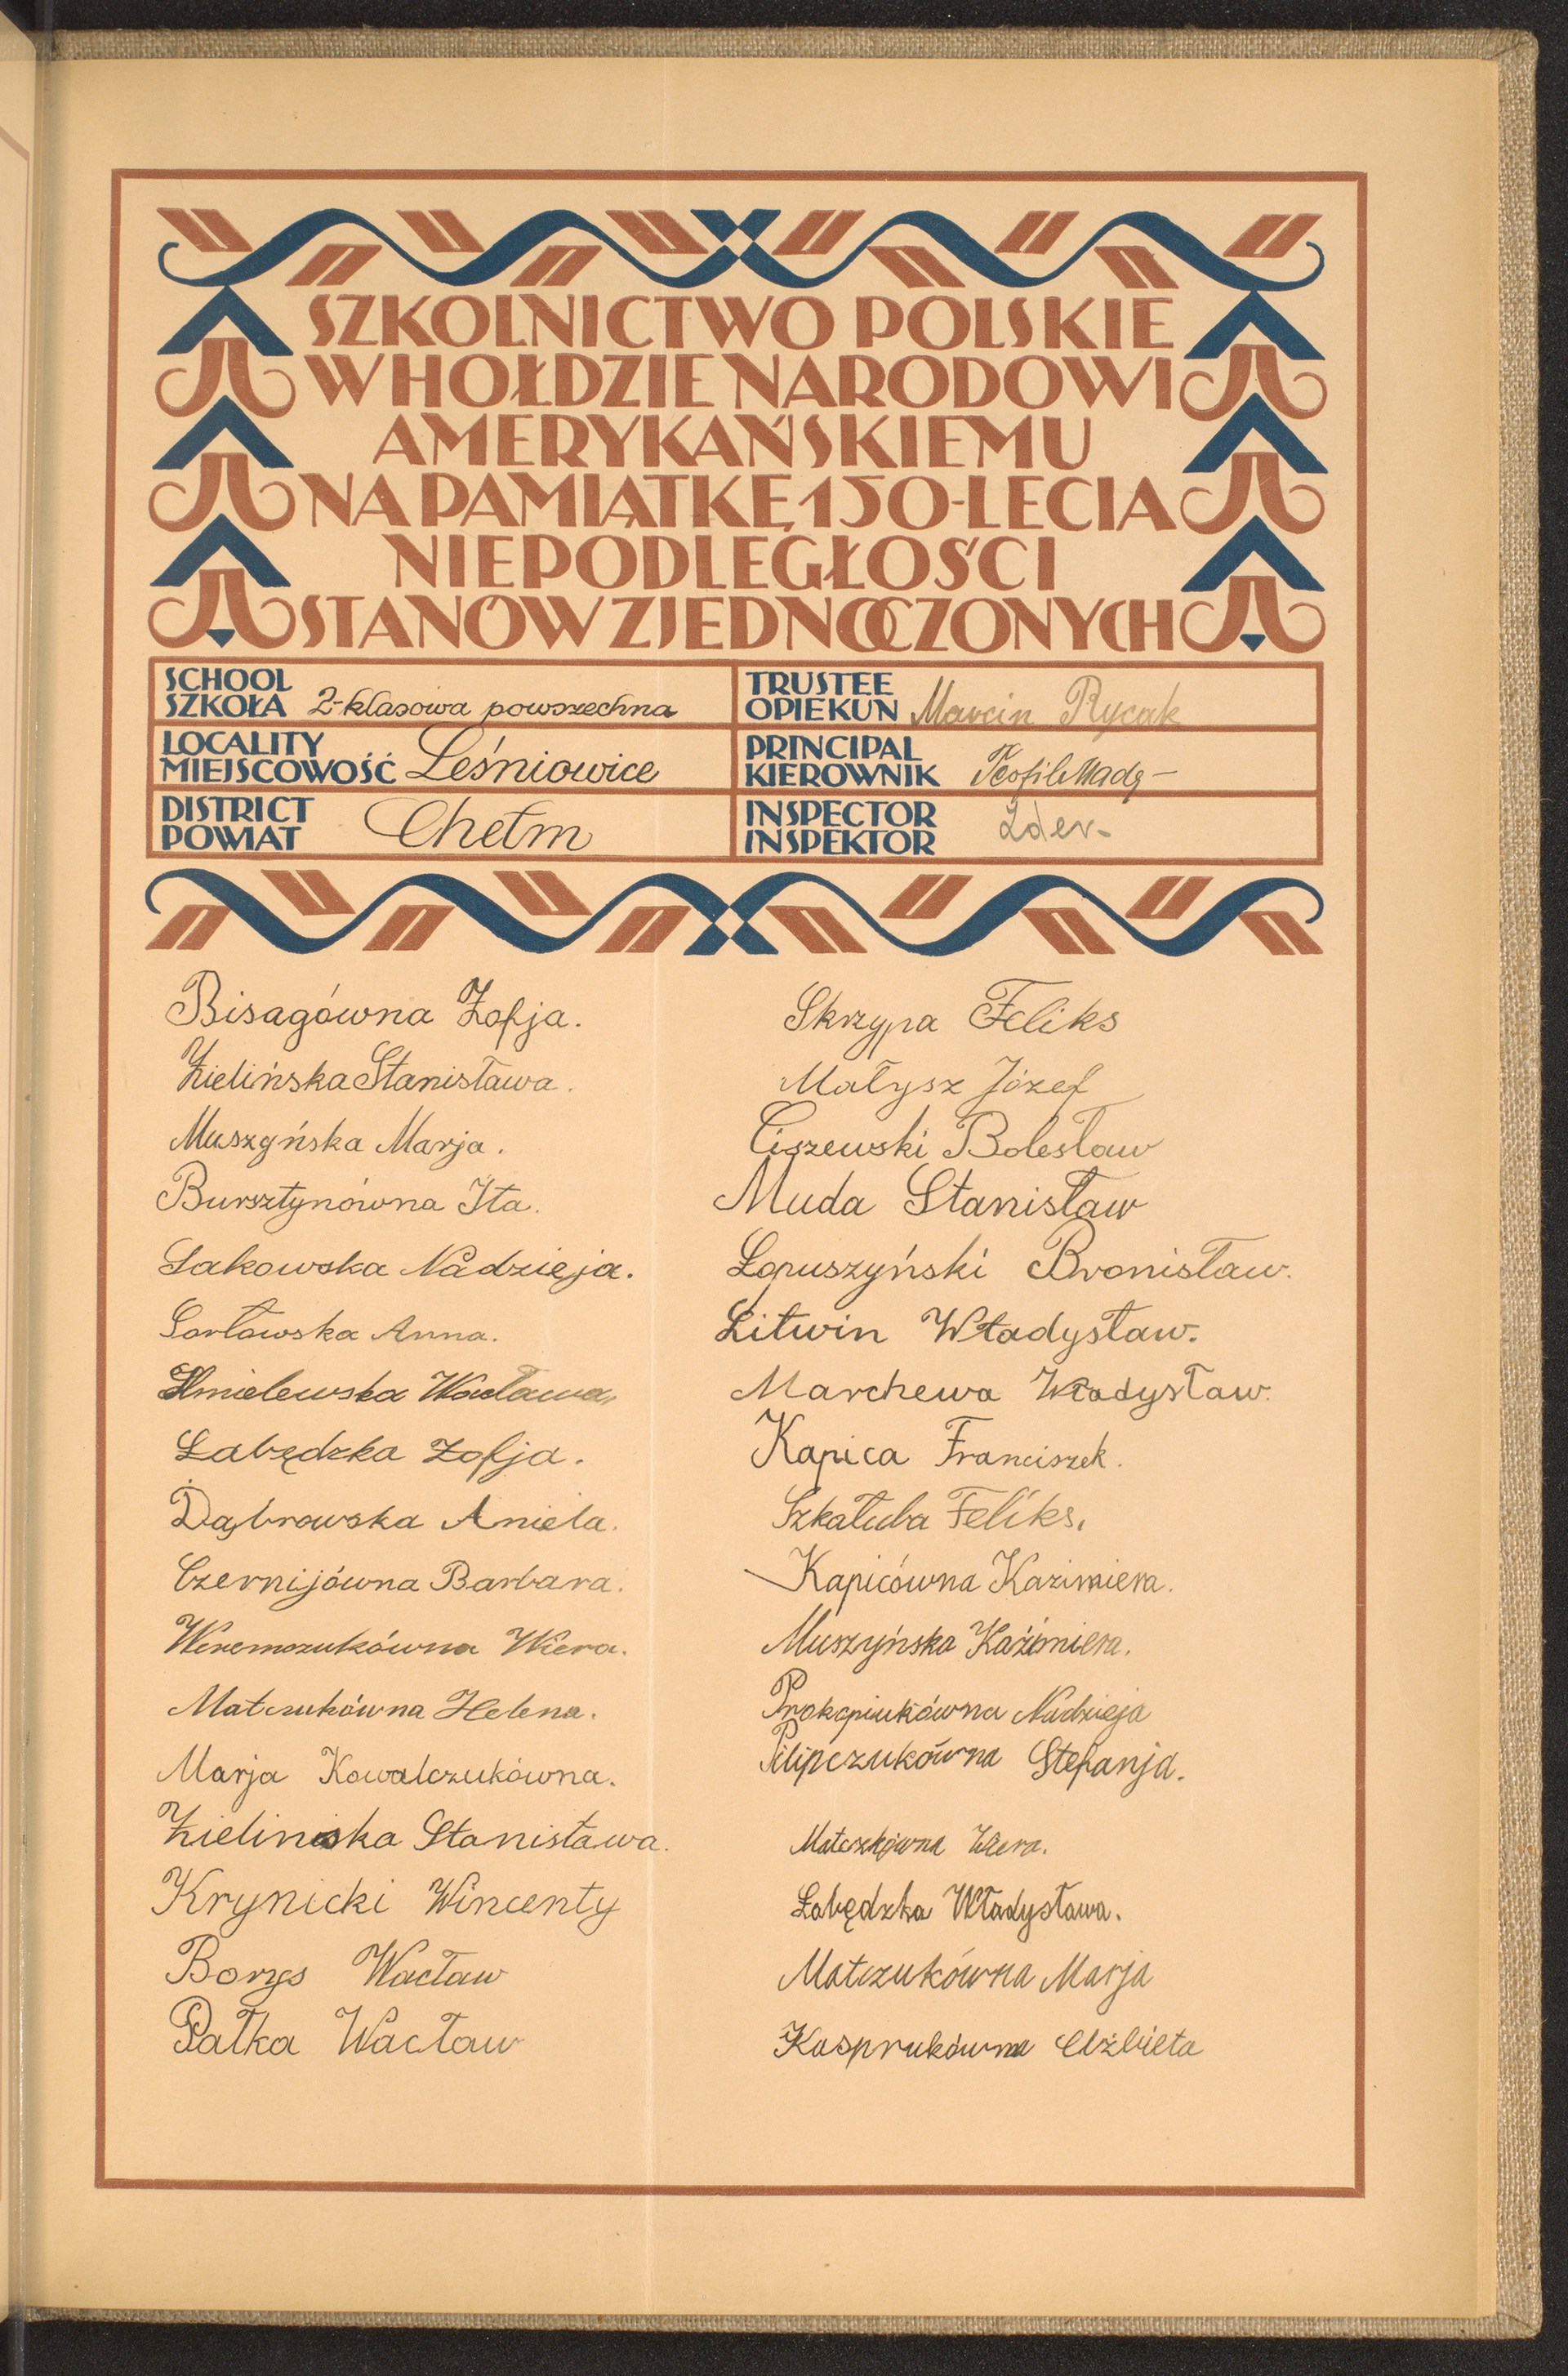 SZKOLNICTWO POLSKIE
W HOŁDZIE NARODOWI
AMERYKAŃSKIEMU
NA PAMIĄTKĘ 150-LECIA
NIEPODLEGŁOŚCI
STANÓW ZJEDNOCZONYCH
SCHOOL
SZKOŁA 2-klasowa powszechna
LOCALITY
MIEJSCOWOŚĆ Leśniowice
DISTRICT
POWIAT Chełm
TRUSTEE
OPIEKUN Marcin Rycak
PRINCIPAL
KIEROWNIK Teofil
INSPECTOR
INSPEKTOR
Bisagówna Zofja.
Zielińska Stanisława.
Muszyńska Marja.
Bursztynówna Ita.
Sakowska Nadzieja.
Sarławska Anna.
Hmielewska Wacława
Łabędzka Zofja.
Dąbrowska Aniela.
Czernijówna Barbara.
Weremczukówna Wiera.
Matczukówna Helena.
Marja Kowalczukówna.
Zielińska Stanisława.
Krynicki Wincenty
Borys Wacław
Pałka Wacław
Skrzypa Feliks
Małysz Józef
Ciszewski Bolesław
Muda Stanisław
Łopuszyński Bronisław.
Litwin Władysław.
Marchewa Władysław.
Kapica Franciszek.
Szkałuba Feliks.
Kapicówna Kazimiera.
Muszyńska Kaźimiera.
Prokopiukówna Nadzieja
Pilipczukówna Stefanja.
Wiera.
Łabędzka Władysława.
Matczukówna Marja
Kasprukówna Elżbieta